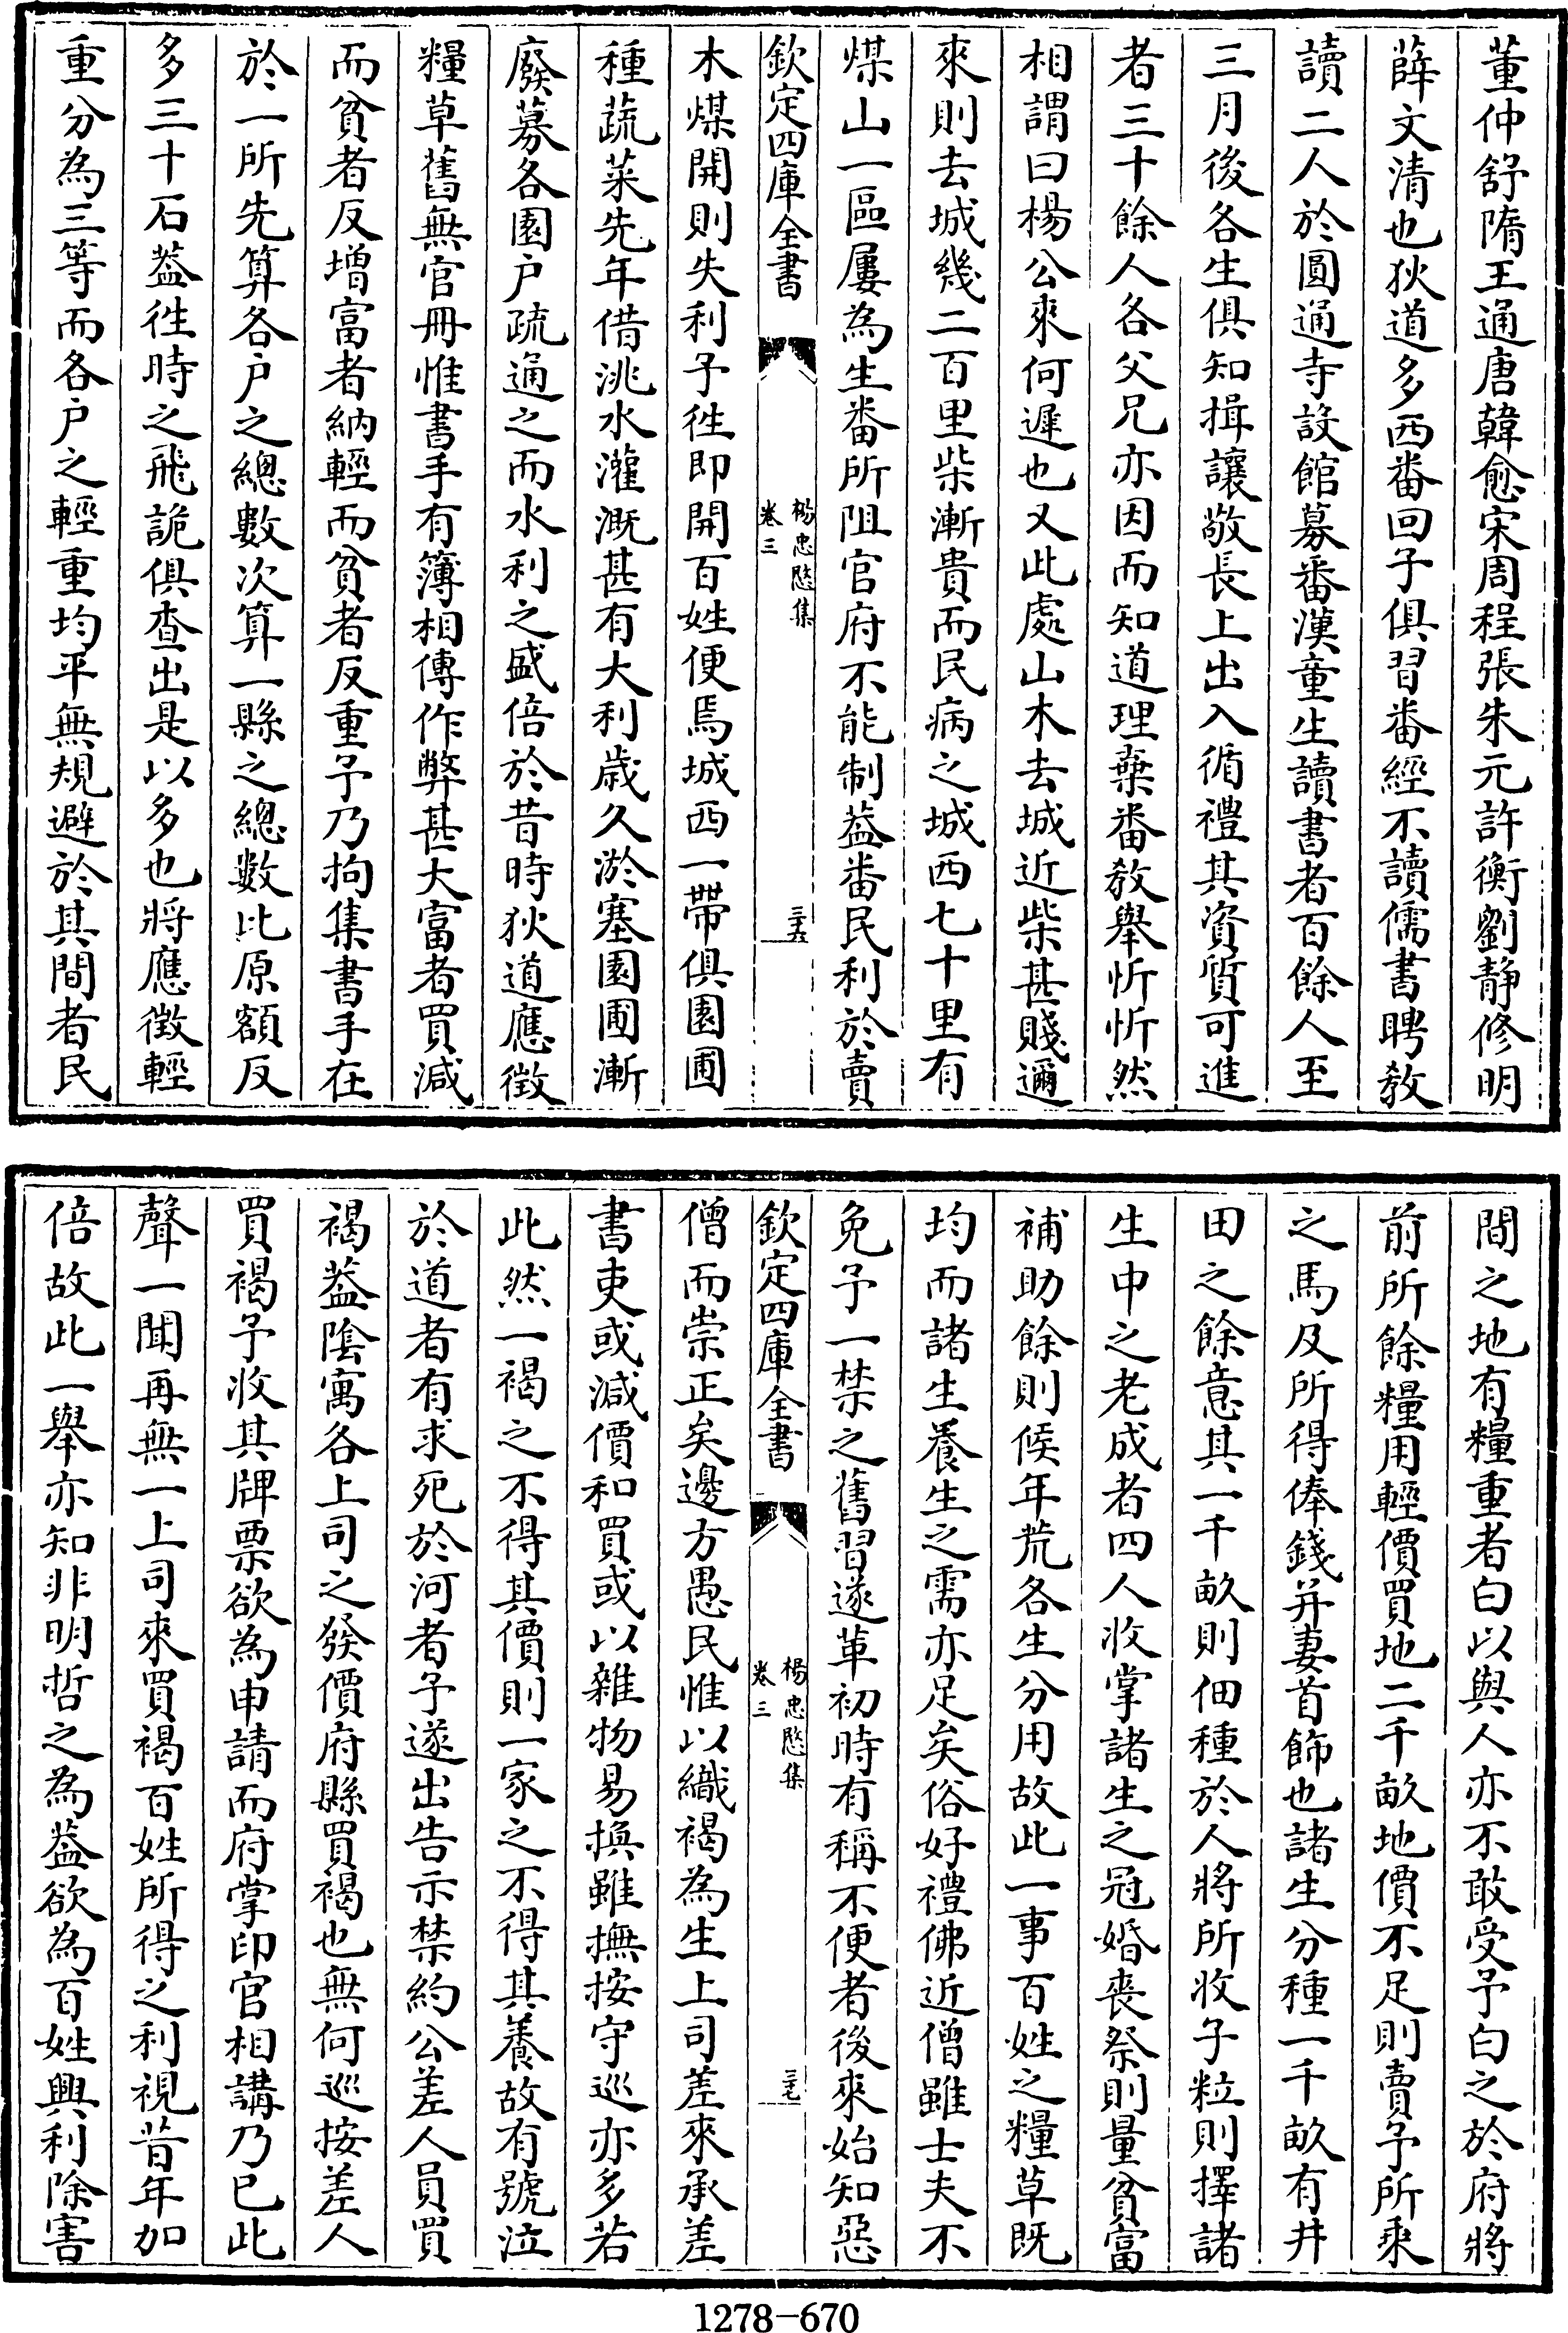 董仲舒隋王通唐韓愈宋周程張朱元許衡劉靜修明
薛文清也狄道多西番回子俱習番經不讀儒書聘敎
讀二人於圓通寺設館募番漢童生讀書者百餘人至
三月後各生俱知揖讓敬長上出入循禮其資質可進
者三十餘人各父兄亦因而知道理棄番敎舉忻忻然
相謂曰楊公來何遲也又此處山木去城近柴甚賤邇
來則去城幾二百里柴漸貴而民病之城西七十里有
煤山一區屢為生番所阻官府不能制葢番民利於賣
欽定四庫全書
楊忠愍集
卷三
三六
木煤開則失利予徃即開百姓便焉城西一帶俱園圃
種蔬菜先年借洮水灌溉甚有大利歲久淤塞園圃漸
廢募各園户疏通之而水利之盛倍於昔時狄道應徵
糧草舊無官冊惟書手有簿相傳作弊甚大富者買減
而貧者反增富者納輕而貧者反重予乃拘集書手在
於一所先算各户之總數次算一縣之總數比原額反
多三十石葢徃時之飛詭俱查出是以多也將應徵輕
重分為三等而各户之輕重均平無規避於其間者民
間之地有糧重者白以與人亦不敢受予白之於府將
前所餘糧用輕價買地二千畝地價不足則賣予所乘
之馬及所得俸錢并妻首飾也諸生分種一千畝有井
田之餘意其一千畝則佃種於人將所收子粒則擇諸
生中之老成者四人收掌諸生之冠婚喪祭則量貧富
補助餘則候年荒各生分用故此一事百姓之糧草既
均而諸生養生之需亦足矣俗好禮佛近僧雖士夫不
免予一禁之舊習遂革初時有稱不便者後來始知惡
欽定四庫全書
楊忠愍集
卷三
三七
僧而崇正矣邊方愚民惟以織褐為生上司差來承差
書吏或減價和買或以雜物易換雖撫按守巡亦多若
此然一褐之不得其價則一家之不得其養故有號泣
於道者有求死於河者予遂出告示禁約公差人員買
褐葢陰寓各上司之發價府縣買褐也無何巡按差人
買褐予收其牌票欲為申請而府掌印官相講乃已此
聲一聞再無一上司來買褐百姓所得之利視昔年加
倍故此一舉亦知非明哲之為葢欲為百姓興利除害
1278-670